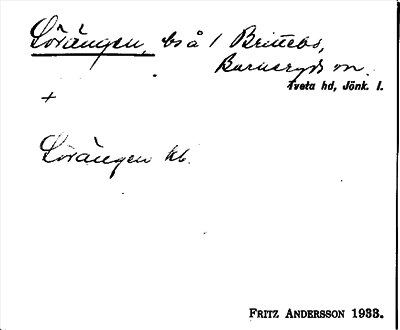 Lörängen, bs å / Brittebo,
Barnaryds sn.
Tveta hd, Jönk. l.
+
Lörängen kb.
FRITZ ANDERSSON 1933.